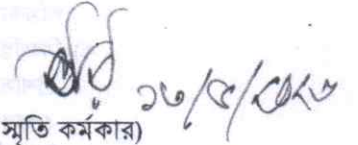 ১৩/৫/২০২৩
স্মৃতি কর্মকার)